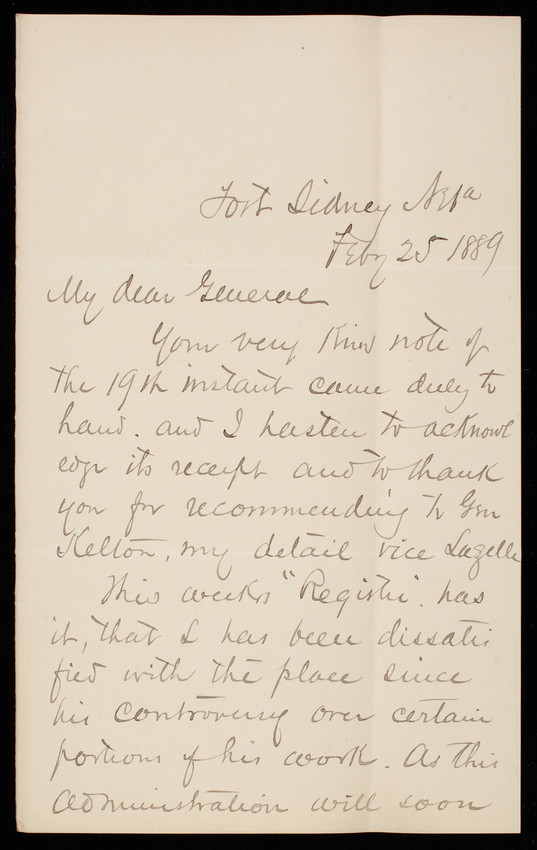 Fort Sidney Neba
Feby 25 1889
My dear General
Your very kind note of
the 19th instant came duly to
hand. and I hasten to acknowl
edge its receipt and to thank
you for recommending to Gen
Kelton, my detail vice Lazelle
This weeks "Register". has
it, that L has been dissatis
fied with the place since
his controversy over certain
portions of his work. As this
Administration will soon